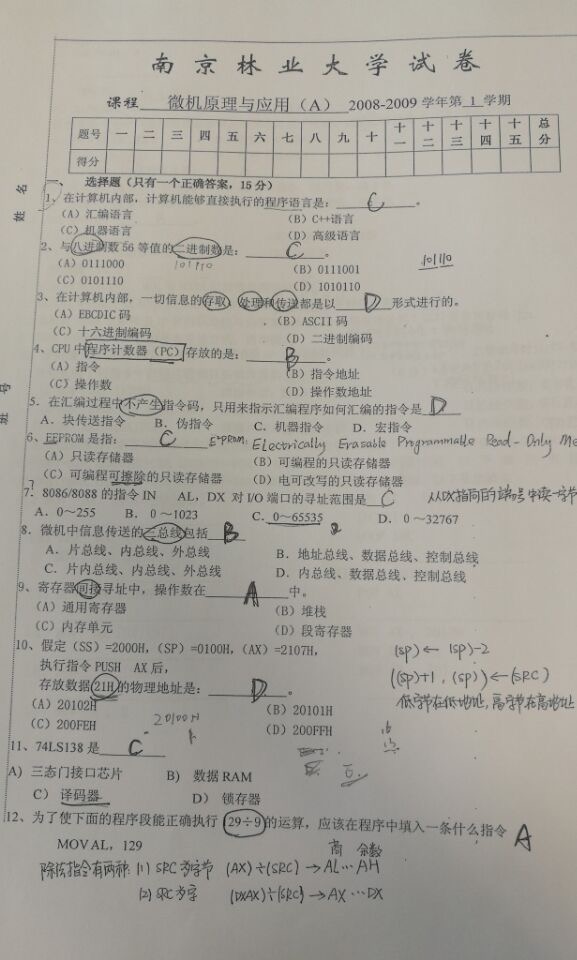 南京林业大学试卷
课程 微机原理与应用（A） 2008-2009 学年第 1 学期
题号 一 二 三 四 五 六 七 八 九 十 十一 十二 十三 十四 十五 总分
得分
姓 名
班 号
一、 选择题（只有一个正确答案，15 分）
1、在计算机内部，计算机能够直接执行的程序语言是：C。
(A) 汇编语言 (B) C++语言
(C) 机器语言 (D) 高级语言
2、与八进制数 56 等值的二进制数是：C。 101110
(A) 0111000 101110 (B) 0111001
(C) 0101110 (D) 1010110
3、在计算机内部，一切信息的存取、处理和传送都是以D形式进行的。
(A) EBCDIC 码 (B) ASCII 码
(C) 十六进制编码 (D) 二进制编码
4、CPU 中程序计数器（PC）存放的是：B。
(A) 指令 (B) 指令地址
(C) 操作数 (D) 操作数地址
5．在汇编过程中不产生指令码，只用来指示汇编程序如何汇编的指令是D
A．块传送指令 B．伪指令 C．机器指令 D．宏指令
6、EEPROM 是指：C E²PROM: Electrically Erasable Programmable Read-Only Me
(A) 只读存储器 (B) 可编程的只读存储器
(C) 可编程可擦除的只读存储器 (D) 电可改写的只读存储器
7．8086/8088 的指令 IN AL，DX 对 I/O 端口的寻址范围是C 从DX指向的端号中读一字节
A．0～255 B．0～1023 C．0～65535 D．0～32767
8．微机中信息传送的三总线包括B
A．片总线、内总线、外总线 B．地址总线、数据总线、控制总线
C．片内总线、内总线、外总线 D．内总线、数据总线、控制总线
9、寄存器间接寻址中，操作数在A中。
(A) 通用寄存器 (B) 堆栈
(C) 内存单元 (D) 段寄存器
10、假定（SS）=2000H，（SP）=0100H，（AX）=2107H，
(SP) ← (SP)-2
执行指令 PUSH AX 后，
((SP)+1, (SP)) ← (SRC)
存放数据 21H 的物理地址是：D。
低字节在低地址,高字节在高地址
(A) 20102H (B) 20101H
(C) 200FEH (D) 200FFH
20100H
11、74LS138 是C
A) 三态门接口芯片 B) 数据 RAM
C) 译码器 D) 锁存器
12、为了使下面的程序段能正确执行 29÷9 的运算，应该在程序中填入一条什么指令 A
MOV AL，129
除法指令有两种: (1) SRC为字节 (AX)÷(SRC) → AL…AH
(2) SRC为字 (DXAX)÷(SRC) → AX…DX